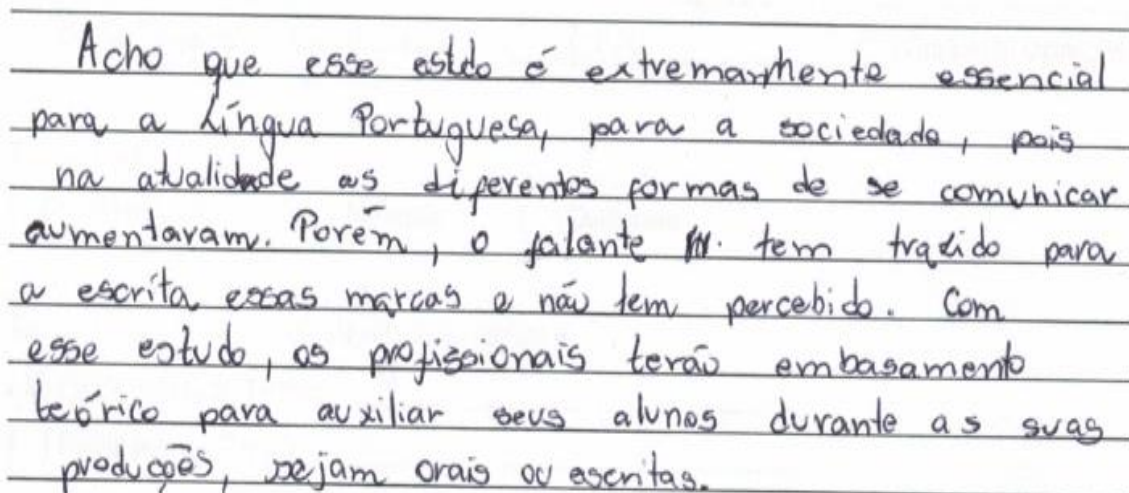 Acho que esse estdo é extremamente essencial
para a Língua Portuguesa, para a sociedade, pois
na atualidade as diferentes formas de se comunicar
aumentaram. Porém, o falante tem trazido para
a escrita essas marcas e não tem percebido. Com
esse estudo, os profissionais terão embasamento
teórico para auxiliar seus alunos durante as suas
produções, sejam orais ou escritas.